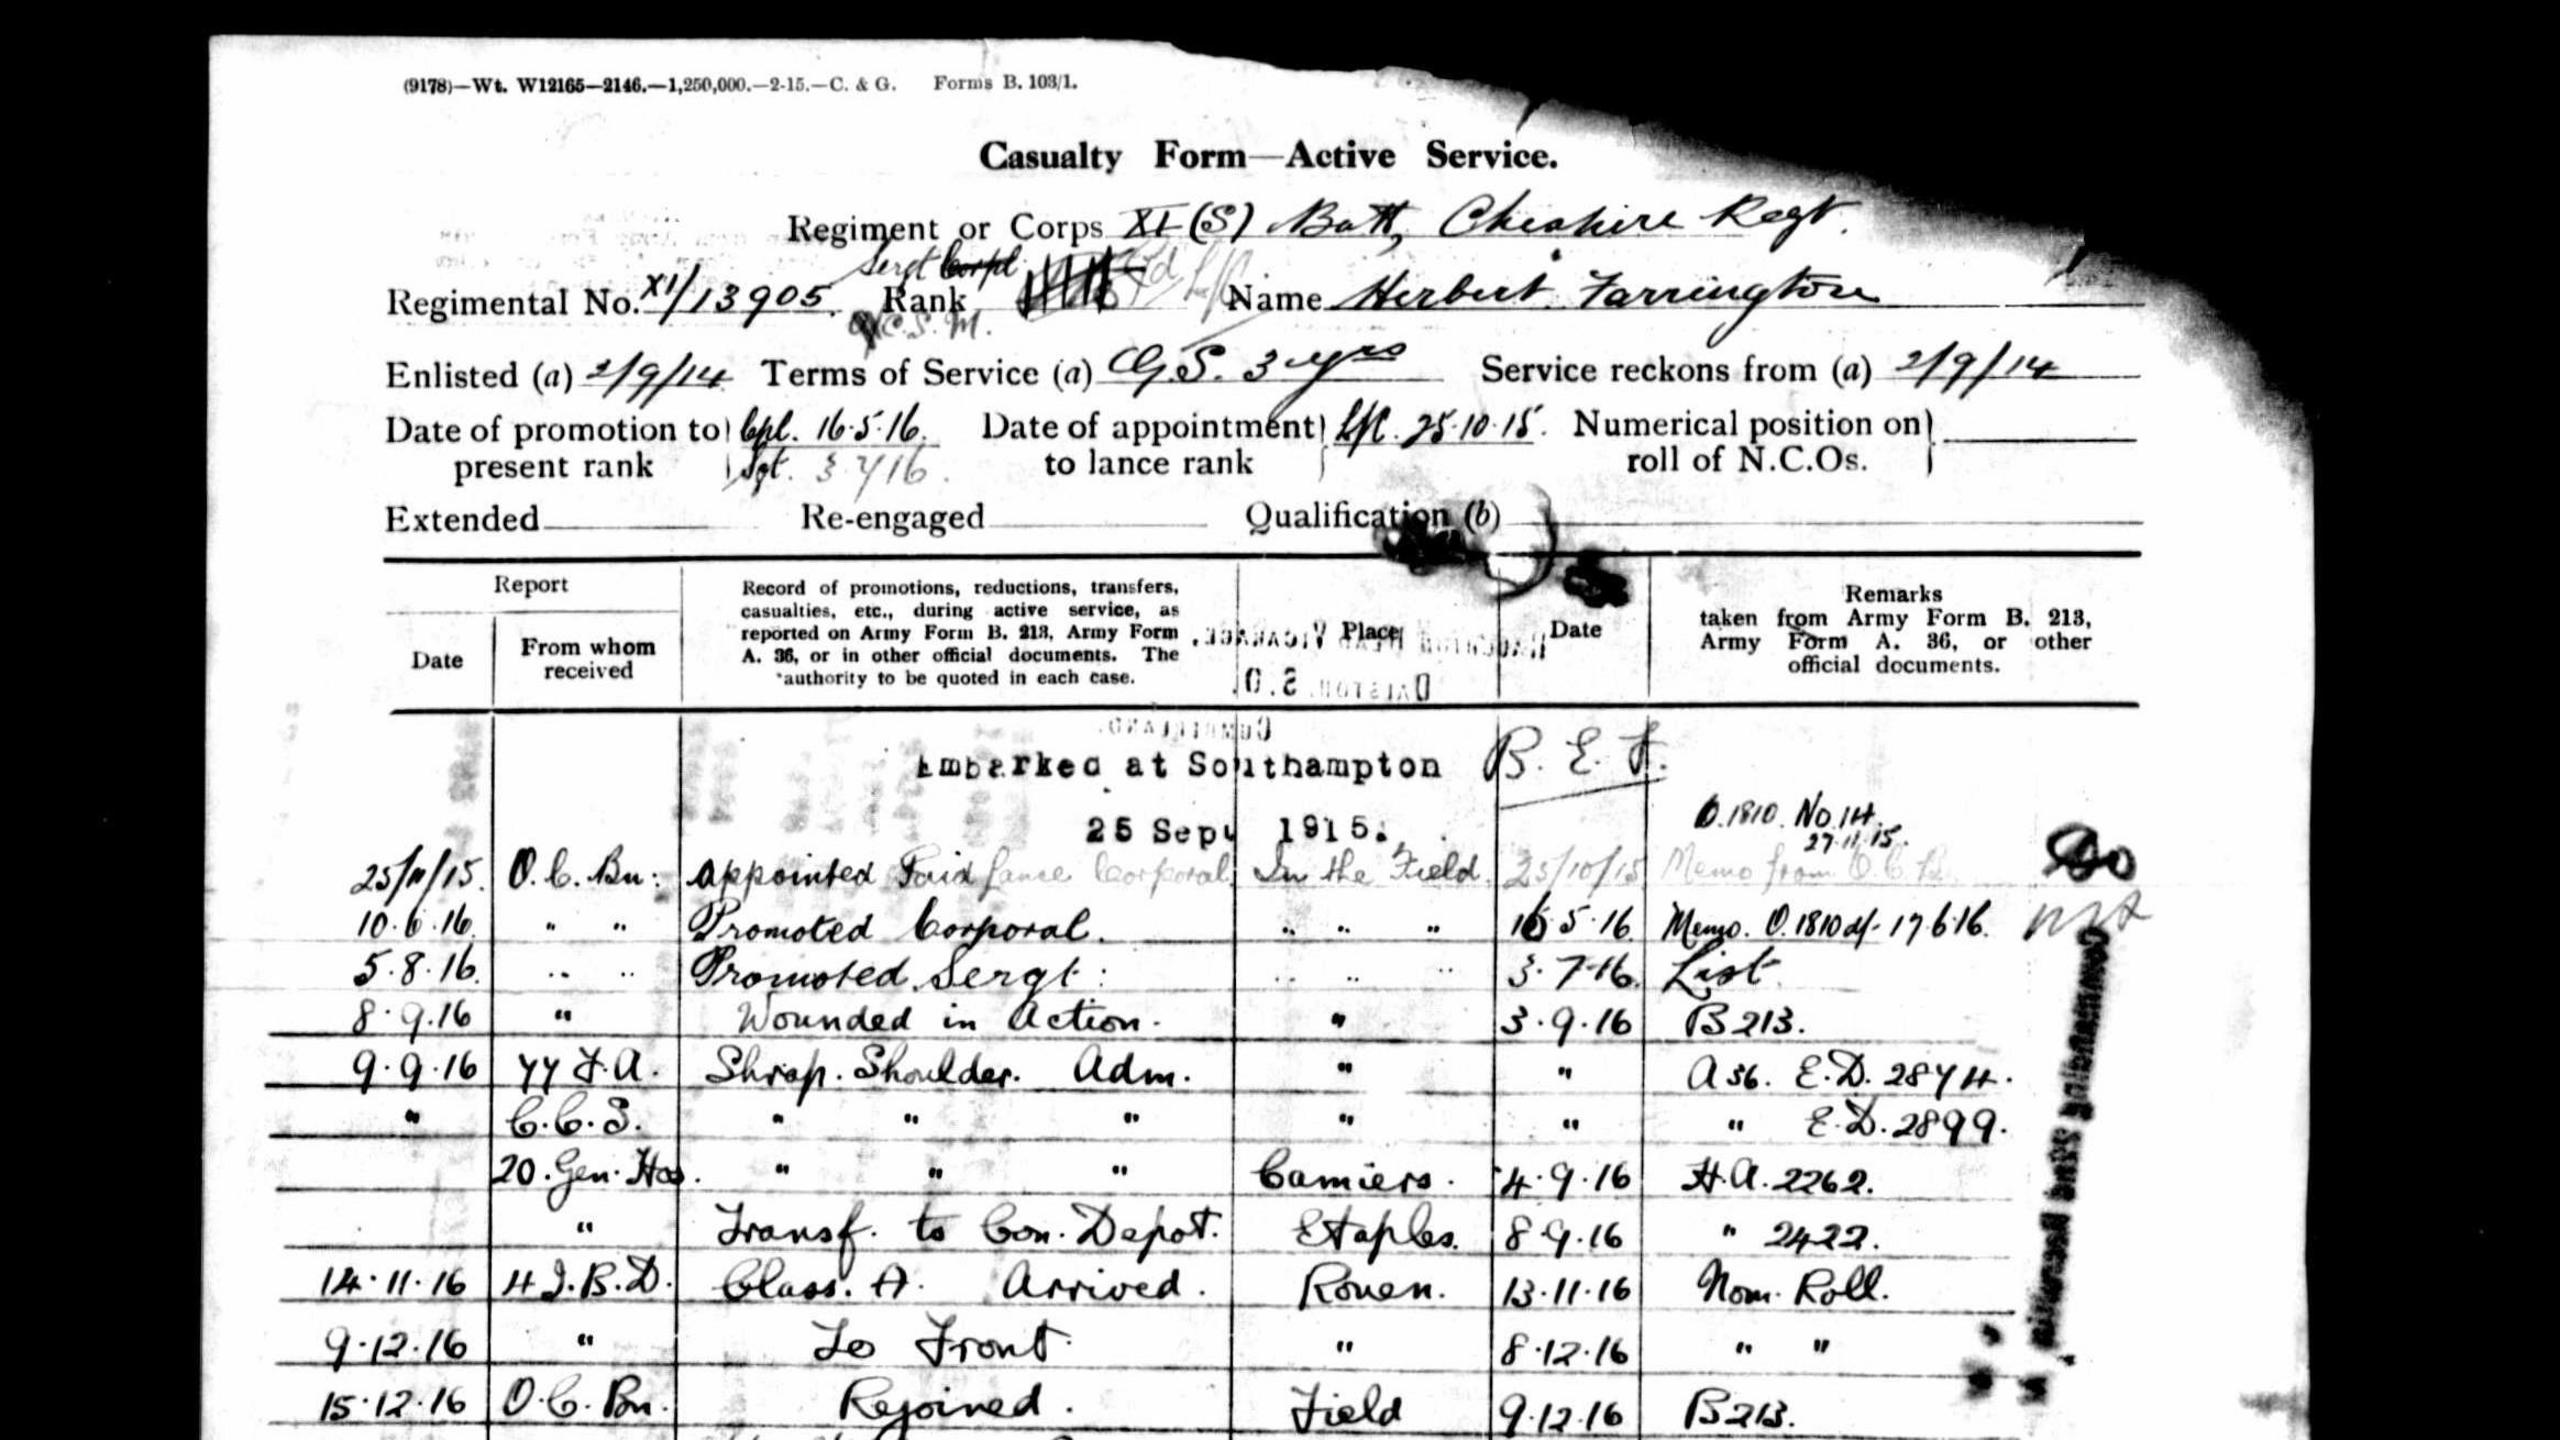 (9178)—Wt. W12165—2146.—1,250,000.—2-15.—C. & G. Forms B. 103/1.
Casualty Form—Active Service.
Regiment or Corps XI (S) Batt, Cheshire Regt.
Sergt Corpl
Regimental No. XI/13905. Rank Name Herbert Farrington
C.S.M.
Enlisted (a) 2/9/14 Terms of Service (a) G.S. 3 yrs Service reckons from (a) 2/9/14
Date of promotion to present rank Cpl. 16.5.16. Date of appointment to lance rank L/C. 25.10.15. Numerical position on roll of N.C.Os.
Sgt. 3.7.16.
Extended Re-engaged Qualification (b)
Report
Date
From whom received
Record of promotions, reductions, transfers,
casualties, etc., during active service, as
reported on Army Form B. 213, Army Form
A. 36, or in other official documents. The
authority to be quoted in each case.
Place
Date
Remarks
taken from Army Form B. 213,
Army Form A. 36, or other
official documents.
Embarked at Southampton B. E. F.
25 Sept 1915.
O.1810. No 14.
27.11.15.
25/11/15. O.C. Bn: Appointed Paid Lance Corporal In the Field 25/10/15 Memo from O.C. Bn
10.6.16. " " Promoted Corporal. " " " 16.5.16. Memo. O.1810 d/- 17.6.16.
5.8.16. " " Promoted Sergt: " " 3.7.16. List
8.9.16 " Wounded in Action. " 3.9.16 B213.
9.9.16 77 F.A. Shrap. Shoulder. Adm. " " A36. E.D. 2874.
" C.C.S. " " " " " " E.D. 2899.
20. Gen. Hos. " " " Camiers. 4.9.16 H.A. 2262.
" Transf. to Con. Depot. Etaples. 8.9.16 " 2422.
14.11.16 4 I.B.D. Class. A. Arrived. Rouen. 13.11.16 Nom. Roll.
9.12.16 " To Front. " 8.12.16 " "
15.12.16 O.C. Bn. Rejoined. Field 9.12.16 B213.